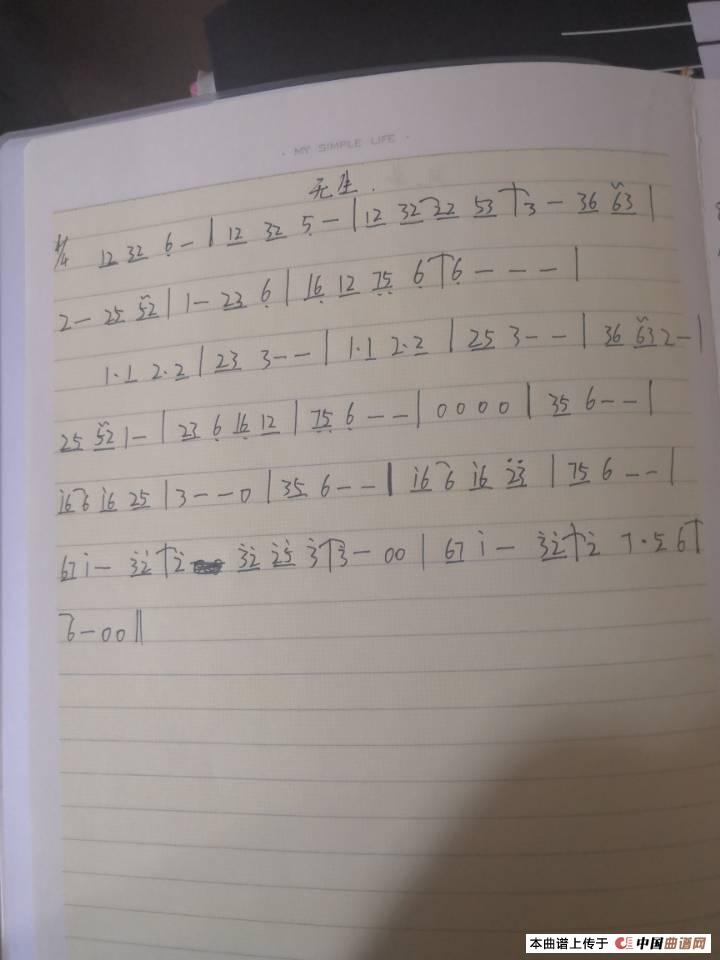 · MY SIMPLE LIFE ·
无生.
4/4 12 32 6 - | 12 32 5 - | 12 32 22 53 | 3 - 36 63 |
2 - 25 52 | 1 - 23 6 | 16 12 75 6 | 6 - - - |
1·1 2·2 | 23 3 - - | 1·1 2·2 | 25 3 - - | 36 63 2 - |
25 52 1 - | 23 6 16 12 | 75 6 - - | 0 0 0 0 | 35 6 - - |
i6 6 i6 25 | 3 - - 0 | 35 6 - - | i6 6 i6 23 | 75 6 - - |
67 i - 32 | 2 32 25 3 | 3 - 0 0 | 67 i - 32 | 2 7·5 6 |
6 - 0 0 ||
本曲谱上传于 中国曲谱网